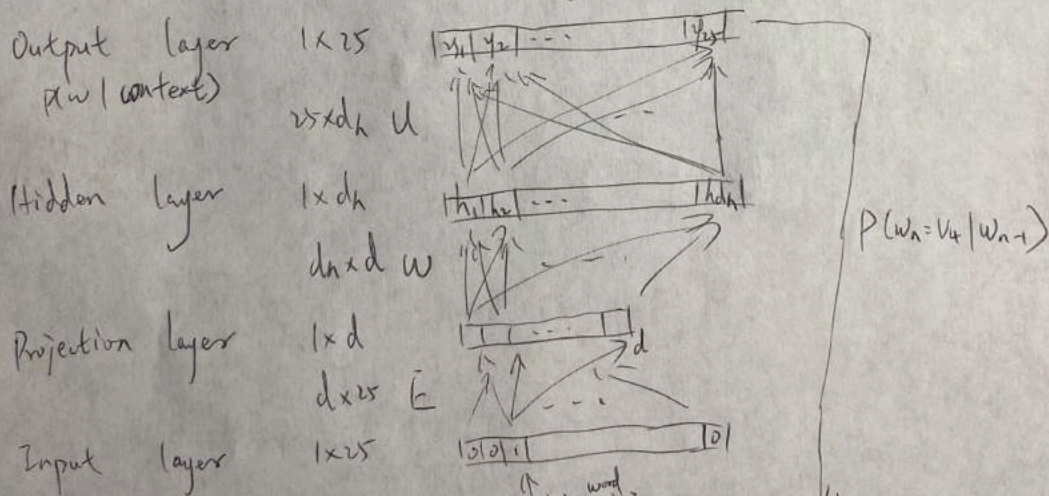 Output layer 1×25 y1 y2 ... y25
p(w | context)
25×dh U
Hidden layer 1×dh h1 h2 ... hdh
P(wn=V4|wn-1)
dh×d W
Projection layer 1×d ... d
d×25 E ...
Input layer 1×25 0 0 1 0
word